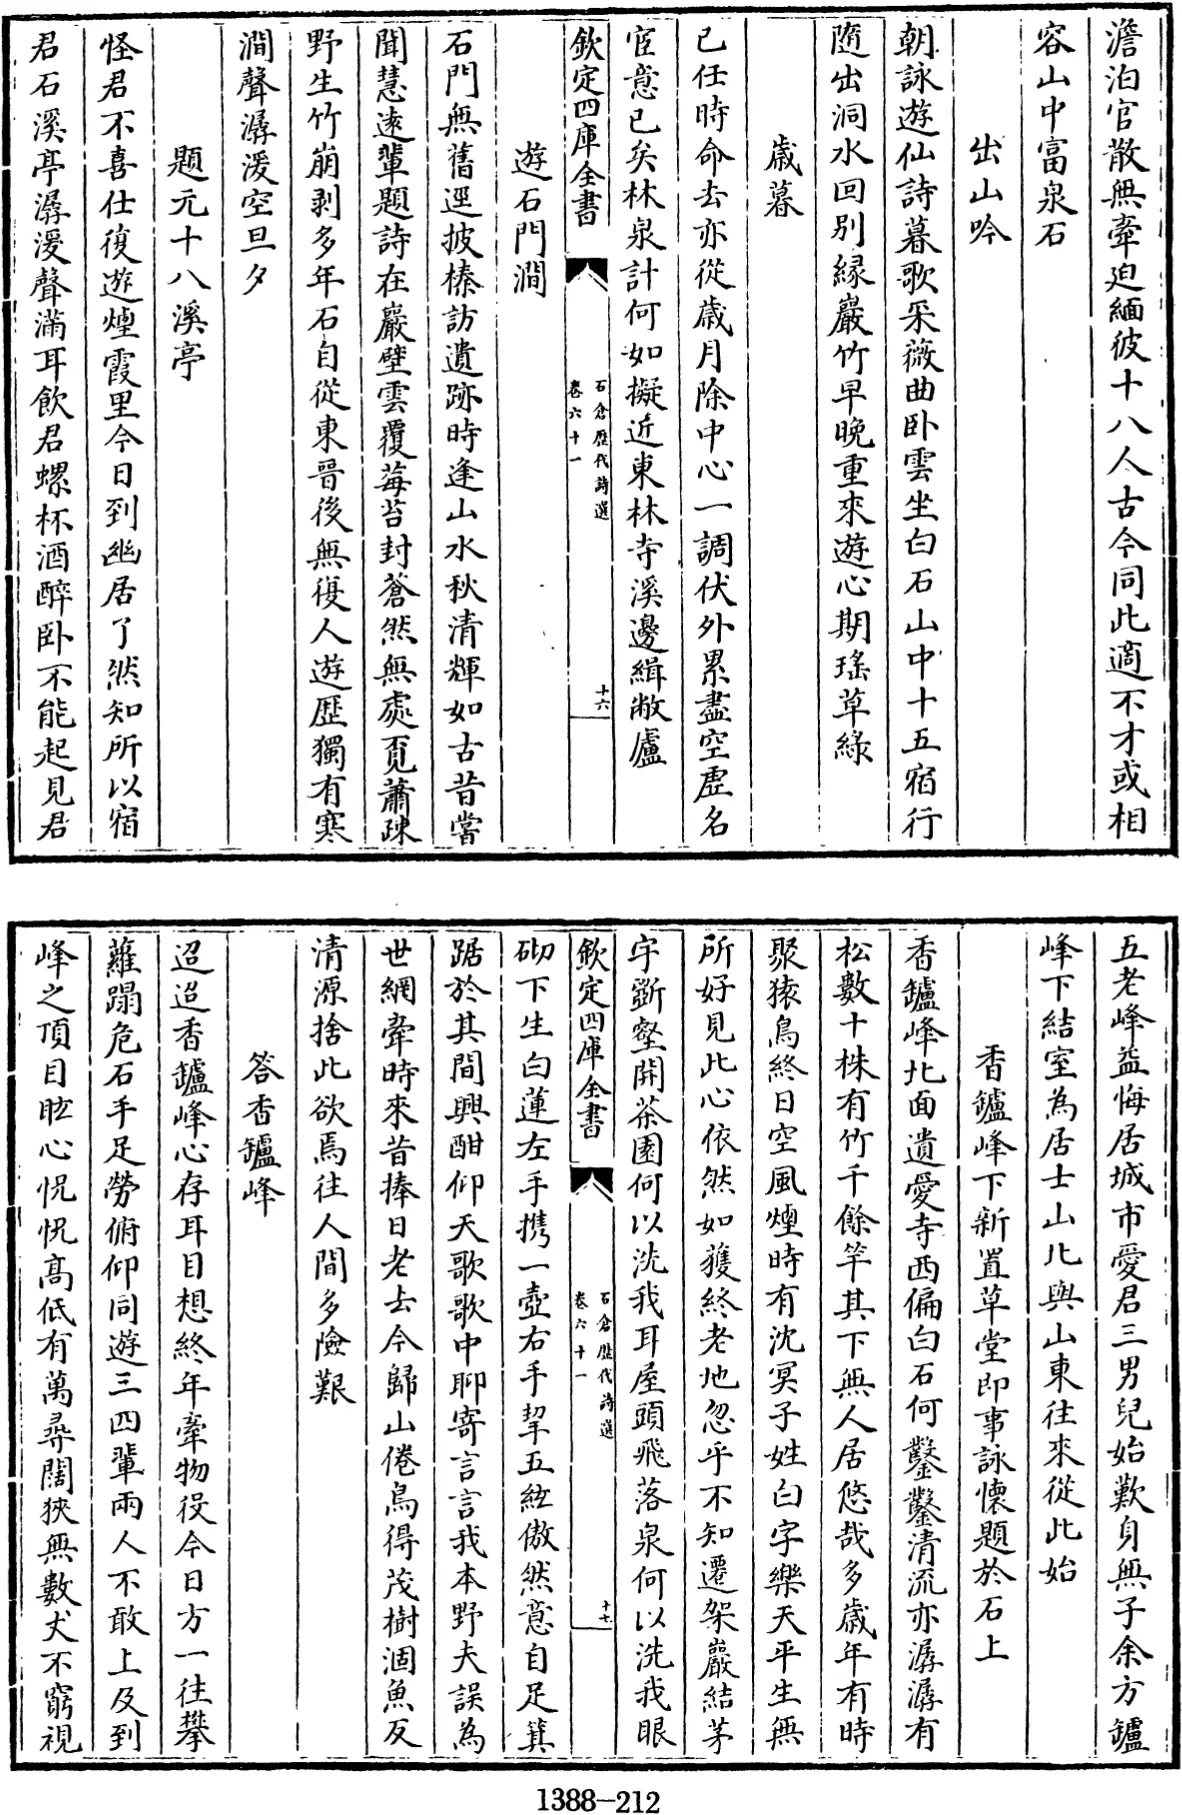 澹泊官散無牽迫緬彼十八人古今同此適不才或相
容山中富泉石
出山吟
朝詠遊仙詩暮歌采薇曲卧雲坐白石山中十五宿行
隨出洞水回别緣巖竹早晚重來遊心期瑤草緑
歲暮
已任時命去亦從歲月除中心一調伏外累盡空虚名
宦意已矣林泉計何如擬近東林寺溪邊緝敝廬
欽定四庫全書
石倉歷代詩選
卷六十一
十六
遊石門澗
石門無舊逕披榛訪遺跡時逢山水秋清輝如古昔嘗
聞慧遠輩題詩在巖壁雲覆莓苔封蒼然無處覓蕭疎
野生竹崩剥多年石自從東晉後無復人遊歷獨有寒
澗聲潺湲空旦夕
題元十八溪亭
怪君不喜仕復遊煙霞里今日到幽居了然知所以宿
君石溪亭潺湲聲滿耳飲君螺杯酒醉卧不能起見君
五老峰益悔居城市愛君三男兒始歎身無子余方鑪
峰下結室為居士山北與山東往來從此始
香鑪峰下新置草堂即事詠懷題於石上
香鑪峰北面遺愛寺西偏白石何鑿鑿清流亦潺潺有
松數十株有竹千餘竿其下無人居悠哉多歲年有時
聚猿鳥終日空風煙時有沈冥子姓白字樂天平生無
所好見此心依然如獲終老地忽乎不知還架巖結茅
宇斲壑開茶園何以洗我耳屋頭飛落泉何以洗我眼
欽定四庫全書
石倉歷代詩選
卷六十一
十七
砌下生白蓮左手攜一壺右手挈五絃傲然意自足箕
踞於其間興酣仰天歌歌中聊寄言言我本野夫誤為
世網牽時來昔捧日老去今歸山倦鳥得茂樹涸魚反
清源捨此欲焉往人間多險艱
答香鑪峰
迢迢香鑪峰心存耳目想終年牽物役今日方一往攀
蘿蹋危石手足勞俯仰同遊三四輩兩人不敢上及到
峰之頂目眩心怳怳高低有萬尋闊狹無數丈不窮視
1388-212